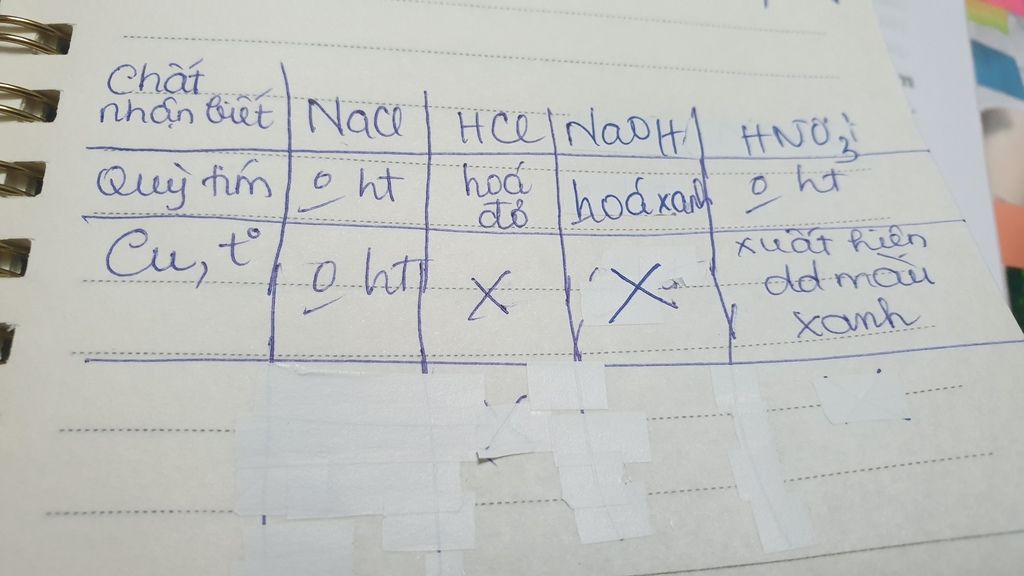 Chất
nhận biết NaCl HCl NaOH HNO₃
Quỳ tím 0 ht hoá đỏ hoá xanh 0 ht
Cu, t° 0 ht X X xuất hiện
dd màu
xanh